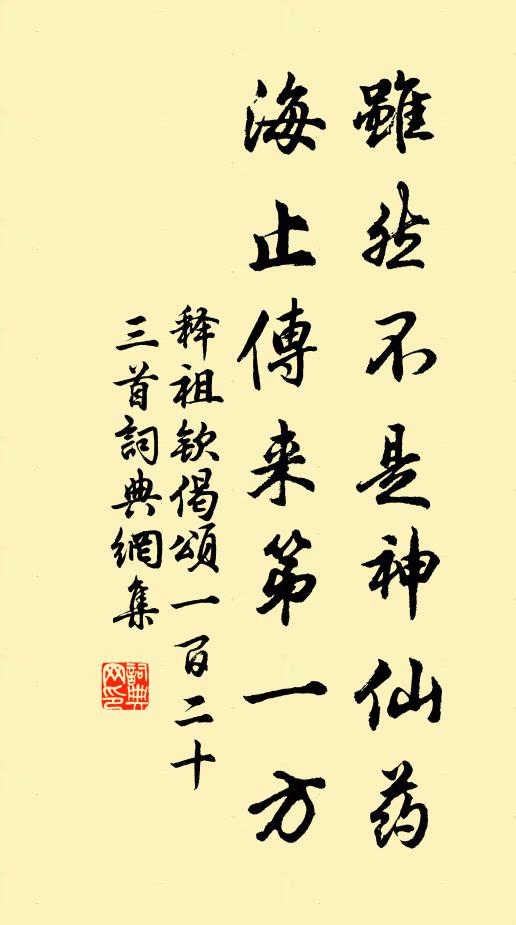 雖然不是神仙药
海止傳来第一方
释祖钦偈頌一百二十
三首詞典網集
詞典
网印